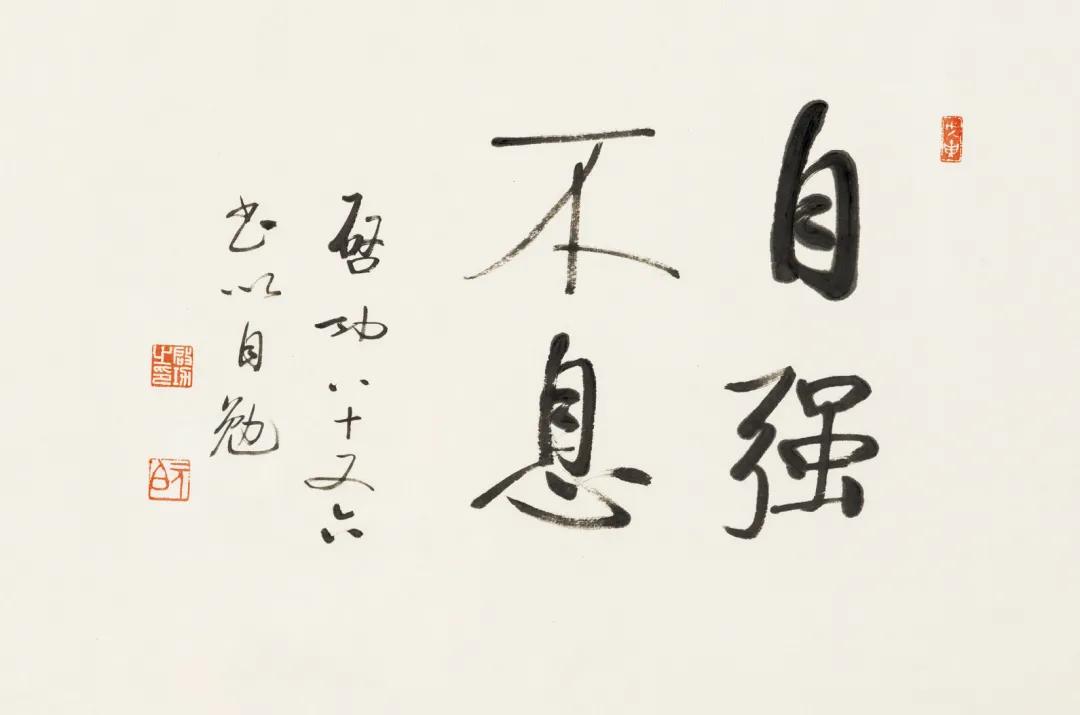 自强
不息
啓功八十又六
书以自勉
啟功之印
元白